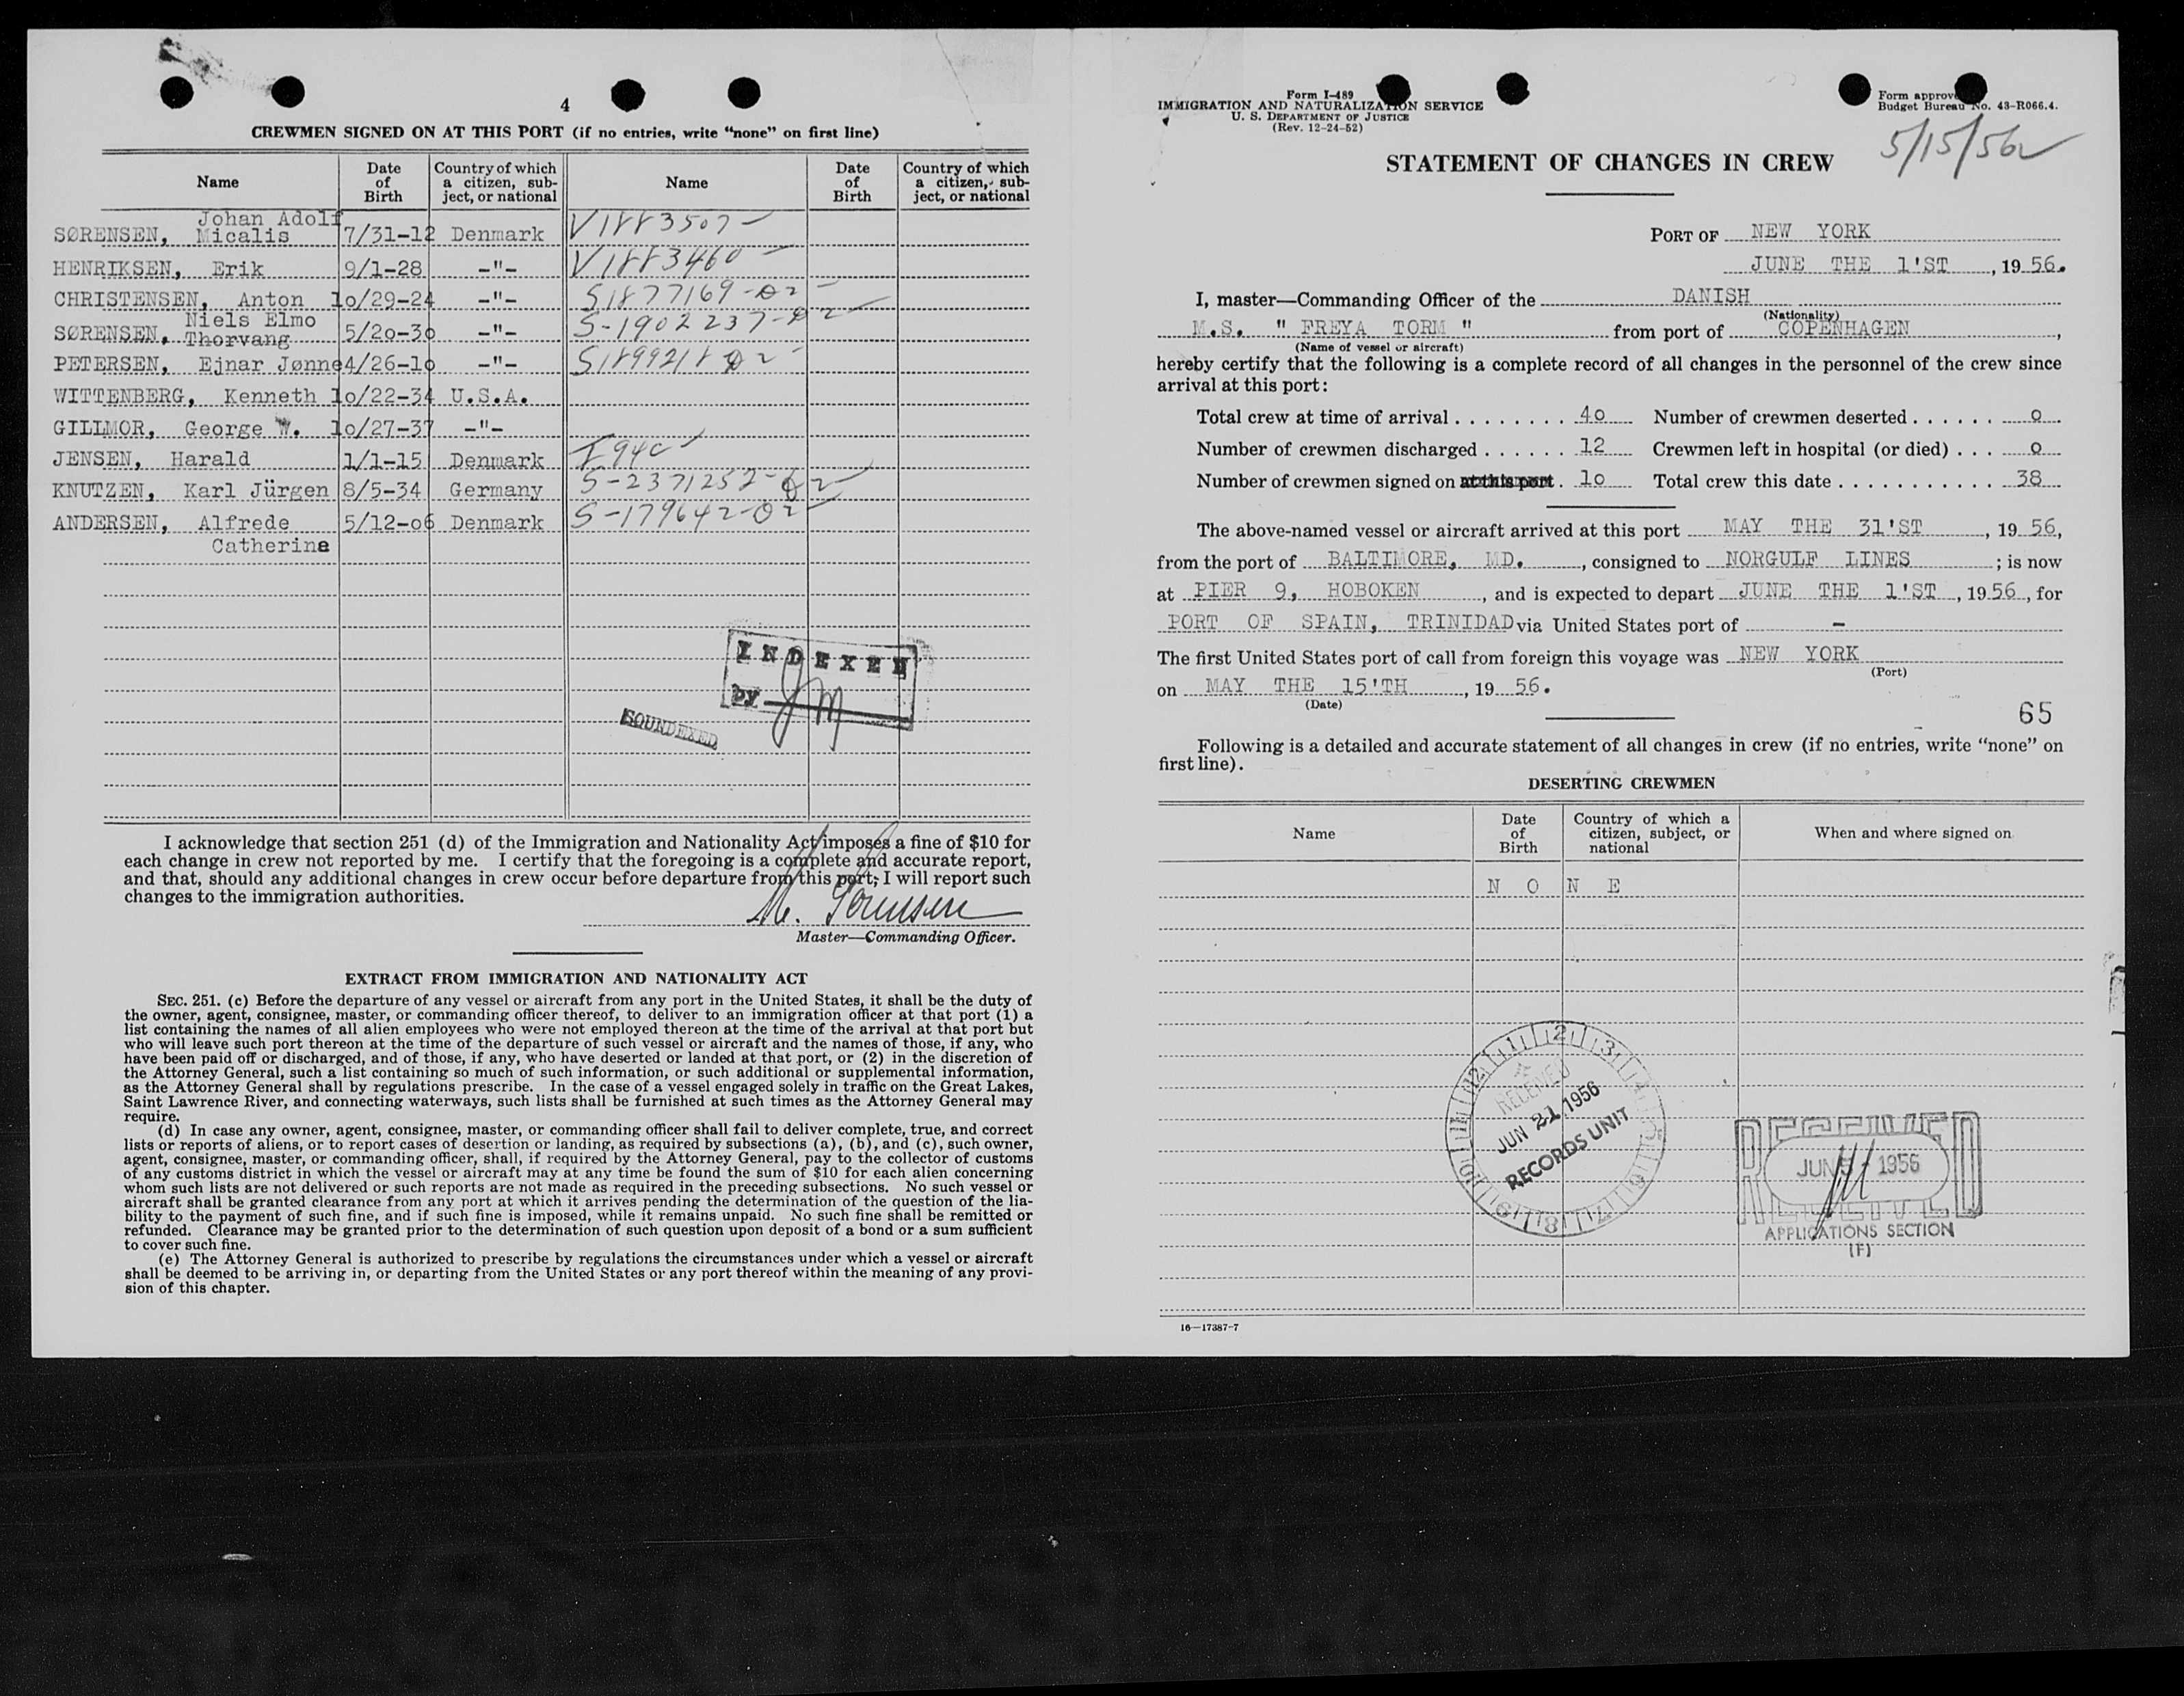 4
CREWMEN SIGNED ON AT THIS PORT (if no entries, write "none" on first line)
Name
Date of Birth
Country of which a citizen, subject, or national
Name
Date of Birth
Country of which a citizen, subject, or national
SØRENSEN, Johan Adolf Micalis 7/31-12 Denmark V1883507
HENRIKSEN, Erik 9/1-28 -"- V1883460
CHRISTENSEN, Anton 1o/29-24 -"- S1877169-02
SØRENSEN, Niels Elmo Thorvang 5/2o-3o -"- S-1902237-02
PETERSEN, Ejnar Jønne 4/26-1o -"- S1899218 02
WITTENBERG, Kenneth 1o/22-34 U.S.A.
GILLMOR, George W. 1o/27-37 -"-
JENSEN, Harald 1/1-15 Denmark I94C
KNUTZEN, Karl Jürgen 8/5-34 Germany S-2371252-02
ANDERSEN, Alfrede Catherine 5/12-o6 Denmark S-179642-02
INDEXED
by JM
SOUNDEXED
I acknowledge that section 251 (d) of the Immigration and Nationality Act imposes a fine of $10 for
each change in crew not reported by me. I certify that the foregoing is a complete and accurate report,
and that, should any additional changes in crew occur before departure from this port, I will report such
changes to the immigration authorities.
M. Sørensen
Master—Commanding Officer.
EXTRACT FROM IMMIGRATION AND NATIONALITY ACT
SEC. 251. (c) Before the departure of any vessel or aircraft from any port in the United States, it shall be the duty of
the owner, agent, consignee, master, or commanding officer thereof, to deliver to an immigration officer at that port (1) a
list containing the names of all alien employees who were not employed thereon at the time of the arrival at that port but
who will leave such port thereon at the time of the departure of such vessel or aircraft and the names of those, if any, who
have been paid off or discharged, and of those, if any, who have deserted or landed at that port, or (2) in the discretion of
the Attorney General, such a list containing so much of such information, or such additional or supplemental information,
as the Attorney General shall by regulations prescribe. In the case of a vessel engaged solely in traffic on the Great Lakes,
Saint Lawrence River, and connecting waterways, such lists shall be furnished at such times as the Attorney General may
require.
(d) In case any owner, agent, consignee, master, or commanding officer shall fail to deliver complete, true, and correct
lists or reports of aliens, or to report cases of desertion or landing, as required by subsections (a), (b), and (c), such owner,
agent, consignee, master, or commanding officer, shall, if required by the Attorney General, pay to the collector of customs
of any customs district in which the vessel or aircraft may at any time be found the sum of $10 for each alien concerning
whom such lists are not delivered or such reports are not made as required in the preceding subsections. No such vessel or
aircraft shall be granted clearance from any port at which it arrives pending the determination of the question of the lia-
bility to the payment of such fine, and if such fine is imposed, while it remains unpaid. No such fine shall be remitted or
refunded. Clearance may be granted prior to the determination of such question upon deposit of a bond or a sum sufficient
to cover such fine.
(e) The Attorney General is authorized to prescribe by regulations the circumstances under which a vessel or aircraft
shall be deemed to be arriving in, or departing from the United States or any port thereof within the meaning of any provi-
sion of this chapter.
Form I-489
IMMIGRATION AND NATURALIZATION SERVICE
U. S. DEPARTMENT OF JUSTICE
(Rev. 12-24-52)
Form approve
Budget Bureau No. 43-R066.4.
5/15/56
STATEMENT OF CHANGES IN CREW
PORT OF NEW YORK
JUNE THE 1'ST, 19 56.
I, master—Commanding Officer of the DANISH
(Nationality)
M.S. "FREYA TORM" from port of COPENHAGEN,
(Name of vessel or aircraft)
hereby certify that the following is a complete record of all changes in the personnel of the crew since
arrival at this port:
Total crew at time of arrival . . . . . . . . 4o Number of crewmen deserted . . . . . . o
Number of crewmen discharged . . . . . . 12 Crewmen left in hospital (or died) . . . o
Number of crewmen signed on at this port . 1o Total crew this date . . . . . . . . . . . 38
The above-named vessel or aircraft arrived at this port MAY THE 31'ST, 19 56,
from the port of BALTIMORE, MD., consigned to NORGULF LINES ; is now
at PIER 9, HOBOKEN, and is expected to depart JUNE THE 1'ST, 19 56, for
PORT OF SPAIN, TRINIDAD via United States port of -
The first United States port of call from foreign this voyage was NEW YORK
(Port)
on MAY THE 15'TH, 19 56.
(Date)
65
Following is a detailed and accurate statement of all changes in crew (if no entries, write "none" on
first line).
DESERTING CREWMEN
Name
Date of Birth
Country of which a citizen, subject, or national
When and where signed on
N O N E
RECEIVED
JUN 21 1956
RECORDS UNIT
RECEIVED
JUN 5 - 1956
APPLICATIONS SECTION
(F)
16—17387-7